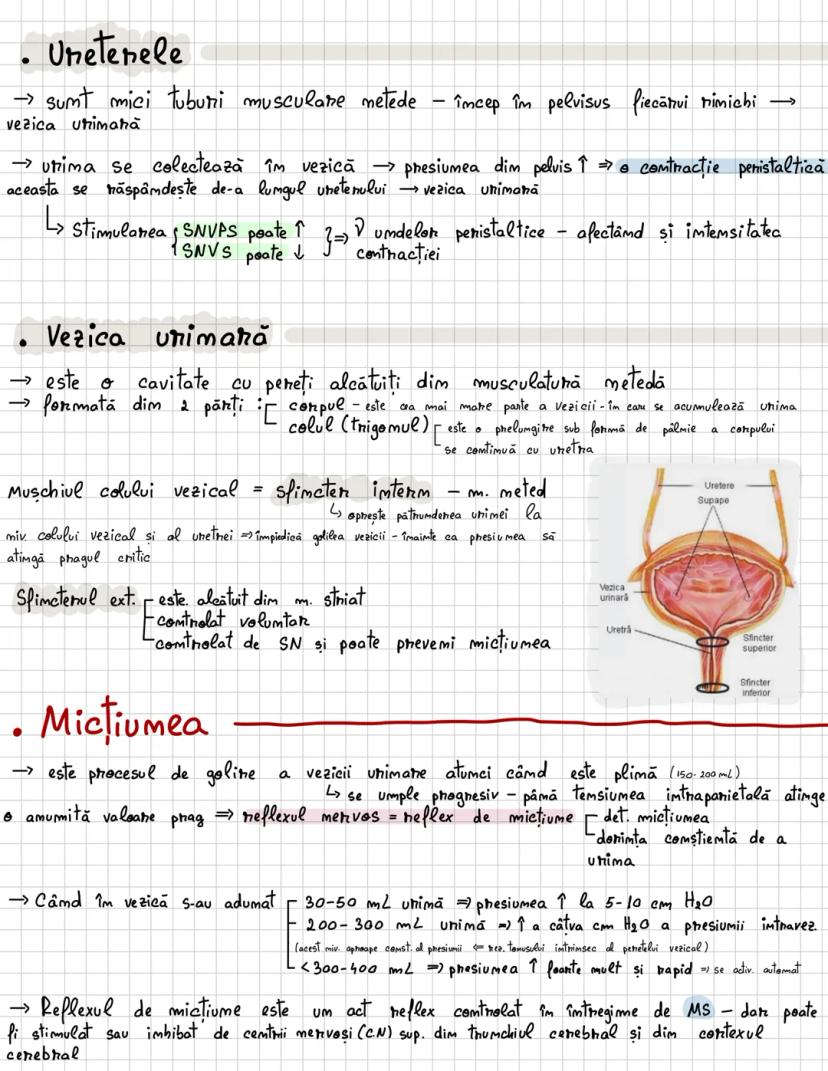 • Ureterele
→ sunt mici tuburi musculare netede – încep în pelvisus fiecărui rinichi →
vezica urinară
→ urina se colectează în vezică → presiunea din pelvis ↑ ⇒ o contracție peristaltică
aceasta se răspândește de-a lungul ureterului → vezica urinară
↳ Stimularea { SNVPS poate ↑ } ⇒ ν undelor peristaltice – afectând și intensitatea
SNVS poate ↓ contracției
• Vezica urinară
→ este o cavitate cu pereți alcătuiți din musculatură netedă
→ formată din 2 părți : [ corpul – este cea mai mare parte a vezicii – în care se acumulează urina
colul (trigonul) [ este o prelungire sub formă de pâlnie a corpului
se continuă cu uretra
Mușchiul colului vezical = sfincter intern – m. neted
↳ oprește pătrunderea urinei la
niv. colului vezical și al uretrei ⇒ împiedică golilea vezicii – înainte ca presiunea să
atingă pragul critic
Sfincterul ext. [ este. alcătuit din m. striat
controlat voluntar
controlat de SN și poate preveni micțiunea
Uretere
Supape
Vezica
urinară
Uretră
Sfincter
superior
Sfincter
inferior
• Micțiunea
→ este procesul de golire a vezicii urinare atunci când este plină (150-200 mL)
↳ se umple progresiv – până tensiunea intraparietală atinge
o anumită valoare prag ⇒ reflexul nervos = reflex de micțiune [ det. micțiunea
dorința conștientă de a
urina
→ Când în vezică s-au adunat [ 30-50 mL urină ⇒ presiunea ↑ la 5-10 cm H₂O
200-300 mL urină ⇒ ↑ a câtva cm H₂O a presiunii intravez.
(acest niv. aproape const. al presiunii ⇐ rez. tonusului intrinsec al peretelui vezical)
<300-400 mL ⇒ presiunea ↑ foarte mult și rapid ⇒ se activ. automat
→ Reflexul de micțiune este un act reflex controlat în întregime de MS – dar poate
fi stimulat sau inhibat de centrii nervoși (C.N) sup. din trunchiul cerebral și din cortexul
cerebral